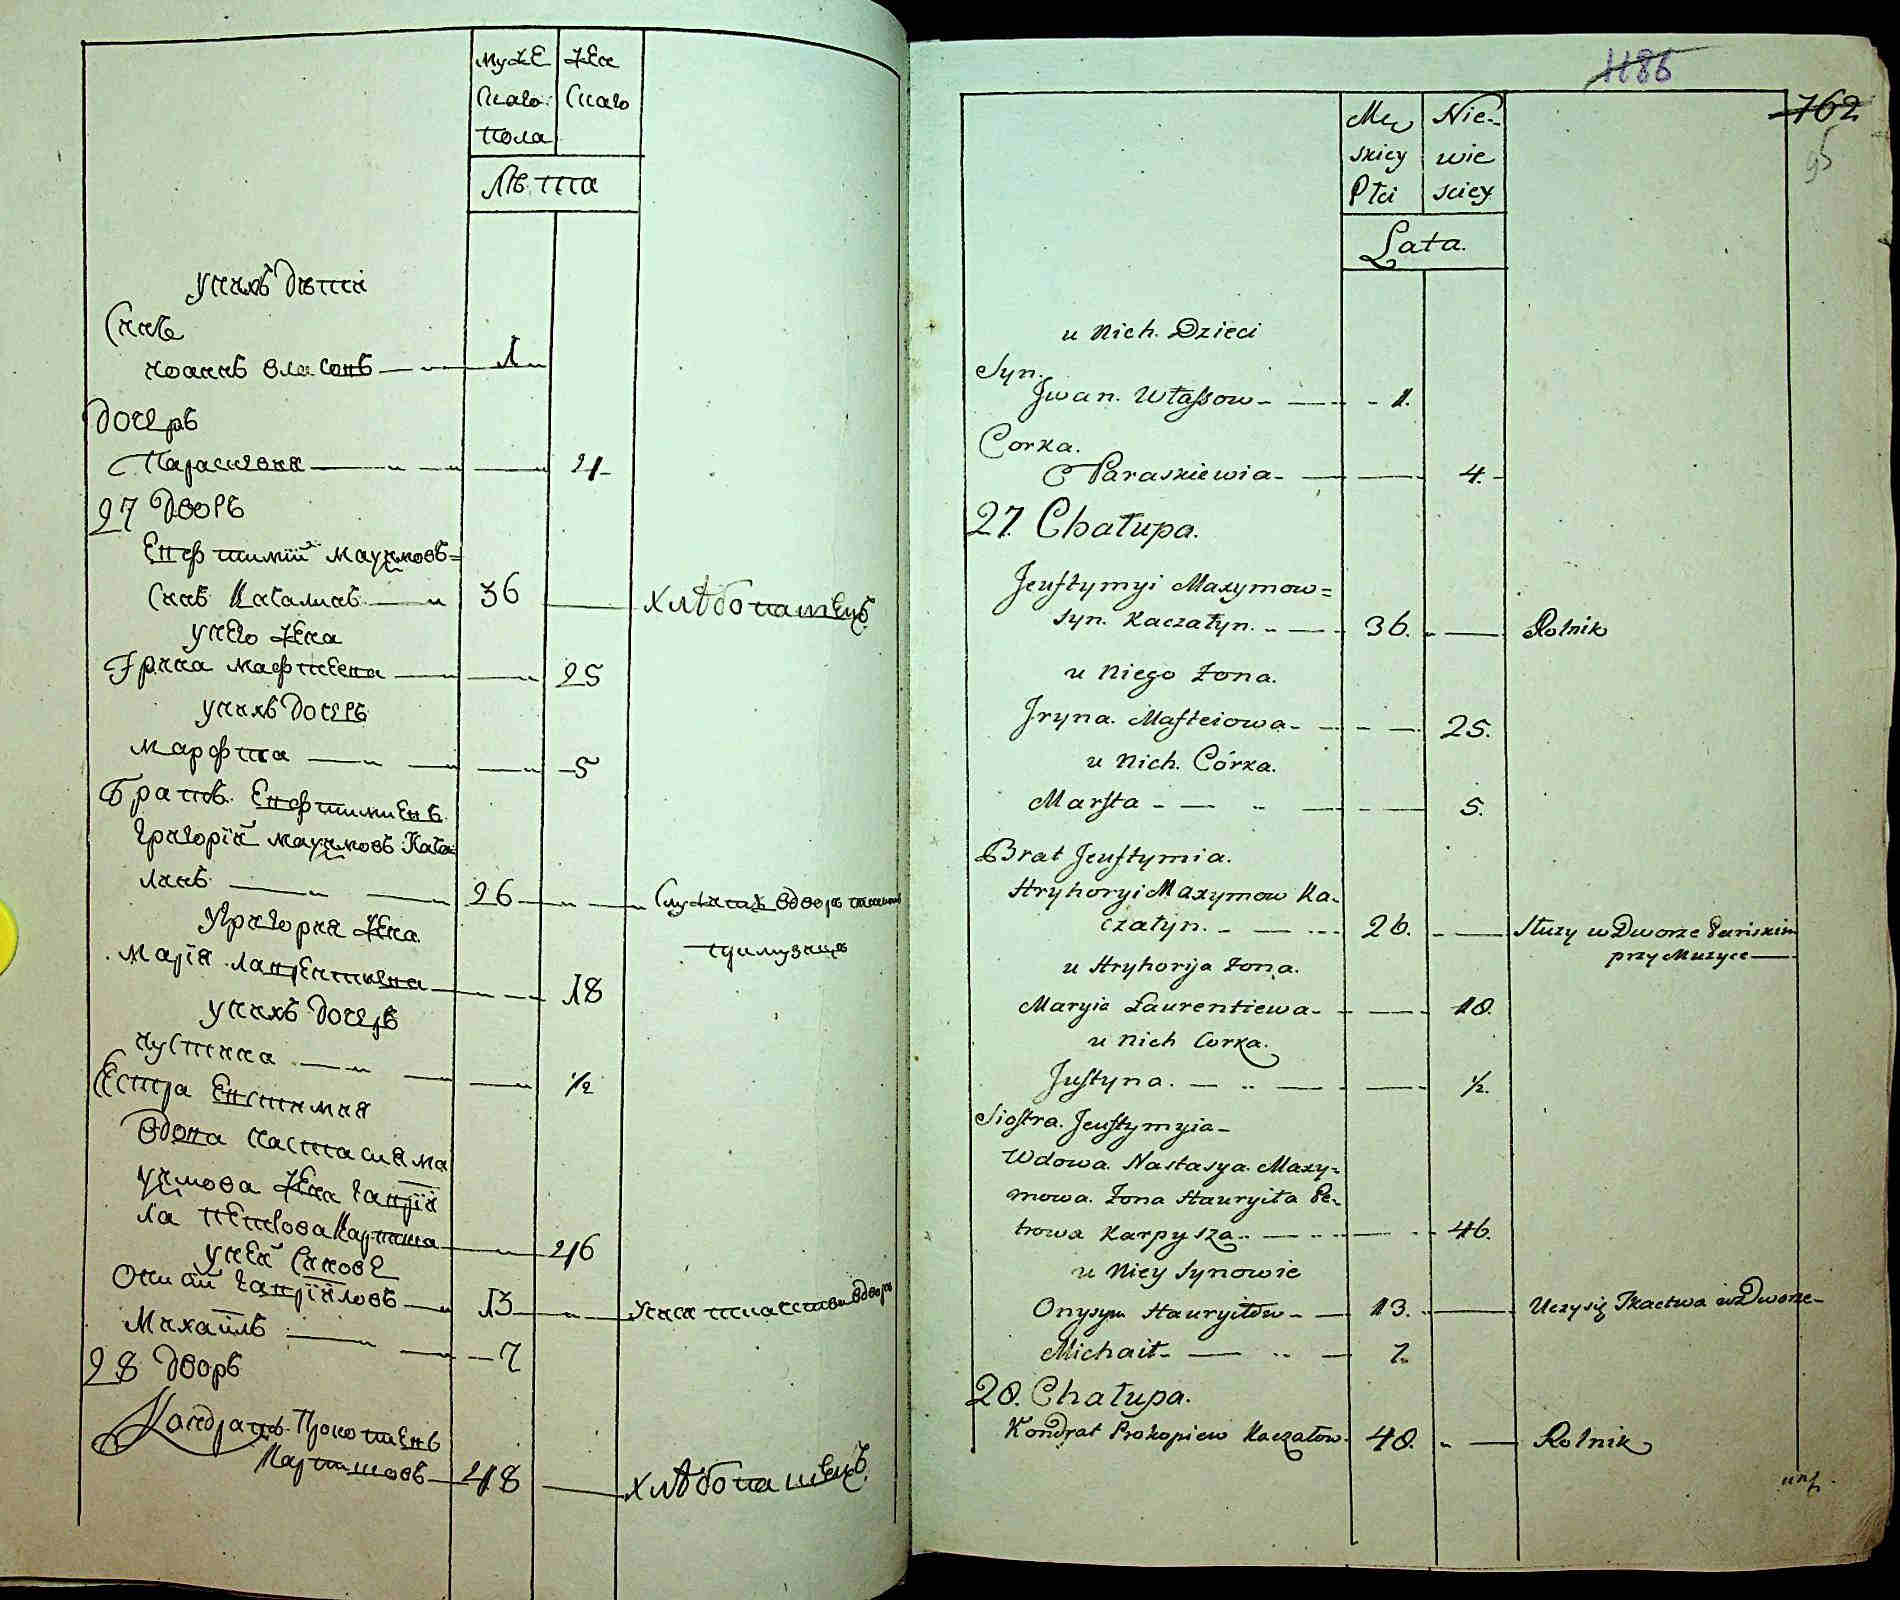 муже
скаго
пола
жен
скаго
лѣта
у нихъ дѣти
Сынъ
иоаннъ власовъ 1
дочерь
Параскевия 4
27 дворъ
Евфтимій маѯимовъ
Сынъ Качалинъ 36 хлѣбопашецъ
у него жена
Ирина мафтиева 25
у нихъ дочерь
марфта 5
братъ Евфтимиевъ
григорій маѯимовъ Кача
линъ 26 Служитъ вдворѣ
у григория жена
мария лаврентиева 18
у нихъ дочерь
иустина ½
Сестра Евстимия
вдова настасия ма
ѯимова жена гаврїи
ла петрова Карпиша 46
у ней Сынове
гаврїиловъ 13
Михаилъ 7
28 дворъ
Кондратъ Прокопиевъ
48 хлѣбопашецъ
1186
762
95
Mę
skiey
Płci
Nie-
wie
sciey
Lata.
u Nich. Dzieci
Syn.
Jwan. Własow 1.
Corka.
Paraskiewia 4.
27. Chałupa.
Jeuftymyi Maxymow=
syn. Kaczałyn. 36. Rolnik
u Niego Żona.
Jryna. Mafteiowa 25.
u Nich. Córka.
Marfta 5.
Brat Jeuftymia.
Hryhoryi Maxymow Ka-
czałyn. 26. Służy w Dworze Pańskim
przy Muzyce
u Hryhorija Żona.
Maryia Laurentiewa 18.
u Nich Corka.
Justyna. ½.
Siostra. Jeuftymyia
Wdowa. Nastasya. Maxy-
mowa. Żona Hauryiła Pe-
trowa Karpysza 46.
u Niey Synowie
Onysym Hauryiłow 13. Uczy się Tkactwa w Dworze
Michaił 7.
28. Chałupa.
Kondrat Prokopiew Kaczałow 48. Rolnik